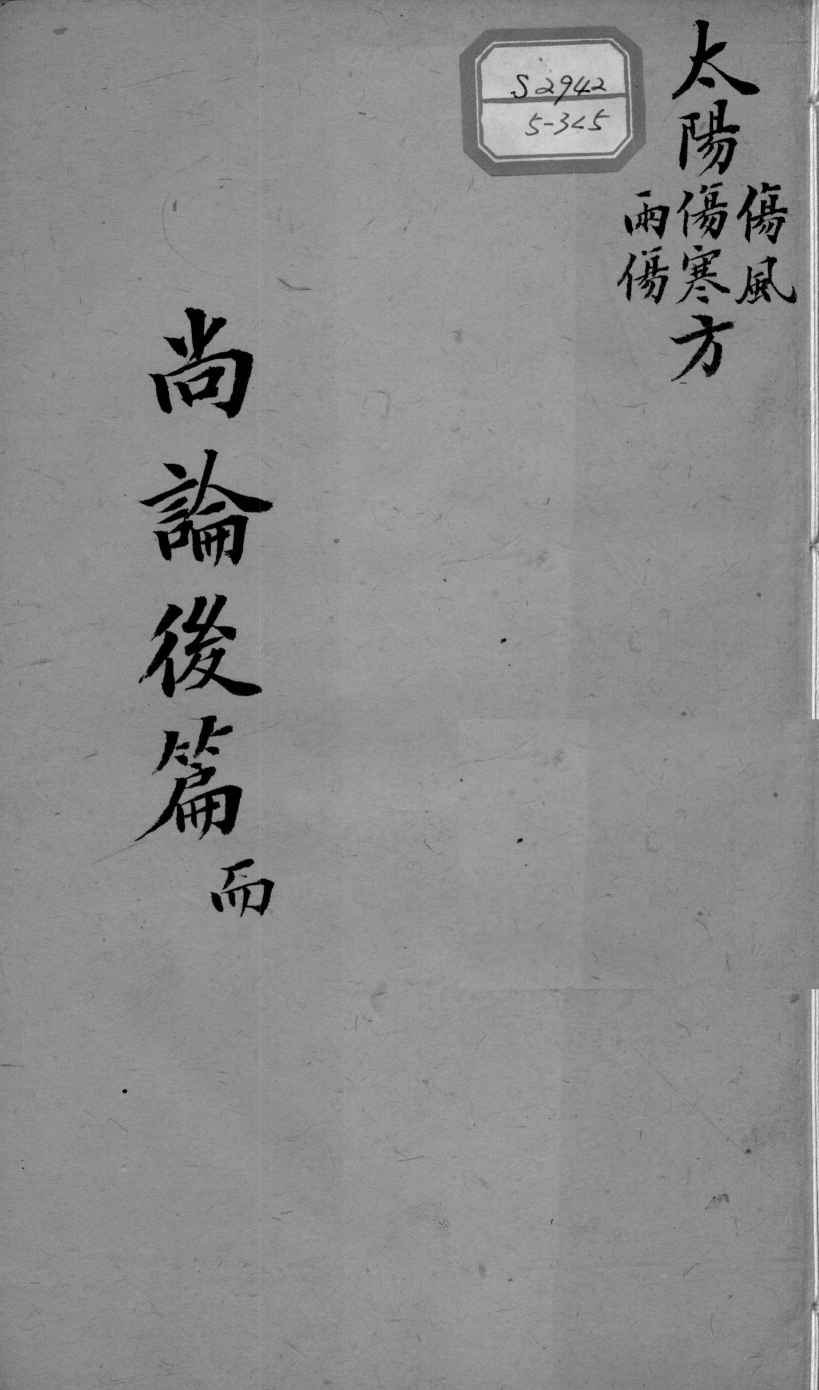 太陽
傷風
傷寒
兩傷
方
尚論後篇
S2942
5-3<5